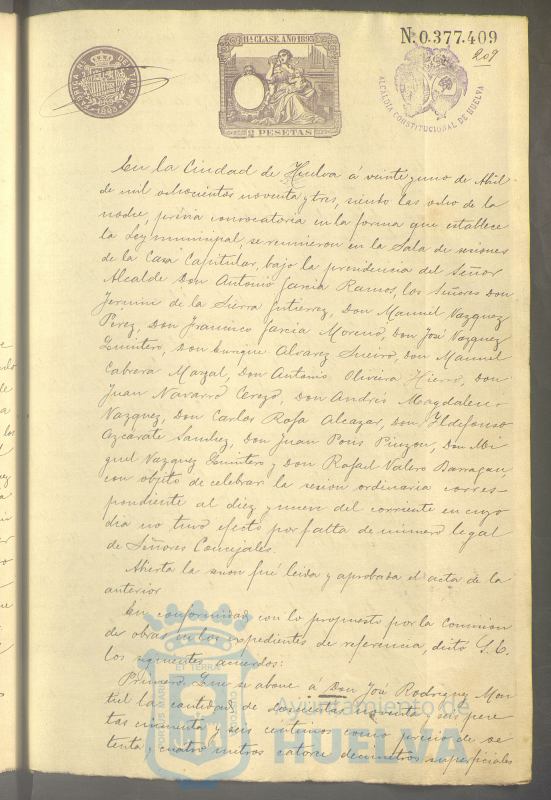 11ª CLASE. AÑO 1893
N. 0.377.409
209
ALCALDIA CONSTITUCIONAL DE HUELVA
2 PESETAS
En la Ciudad de Huelva á veinte y uno de Abril
de mil ochocientos noventa y tres, siendo las ocho de la
noche, prévia convocatoria en la forma que establece
la Ley municipal, se reunieron en la Sala de sesiones
de la Casa Capitular, bajo la presidencia del Señor
Alcalde Don Antonio Garcia Ramos, los Señores Don
Jermin de la Sierra Gutierrez, Don Manuel Vazquez
Perez, Don Francisco Garcia Moreno, Don José Vazquez
Quintero, Don Enrique Alvarez Sueiro, Don Manuel
Cabrera Mayal, Don Antonio Oliveira Hierro, Don
Juan Navarro Cerezo, Don Andrés Magdalena
Vazquez, Don Carlos Rofa Alcazar, Don Ildefonso
Azcárate Sanchez, Don Juan Pons Pinzon, Don Mi-
guel Vazquez Quintero y Don Rafael Valero Barragan,
con objeto de celebrar la sesion ordinaria corres-
pondiente al diez y nueve del corriente en cuyo
dia no tuvo efecto por falta de número legal
de Señores Concejales.
Abierta la sesion fué leida y aprobada el acta de la
anterior
En conformidad con lo propuesto por la Comision
de obras en los expedientes de referencia, dictó S.E.
los siguientes acuerdos:
Primero: Que se abone á Don José Rodriguez Mon-
tiel la cantidad de doscientas noventa y seis pese-
tas cincuenta y seis centimos como precio de se-
tenta y cuatro metros catorce decimetros superficiales
Ayuntamiento de
HUELVA